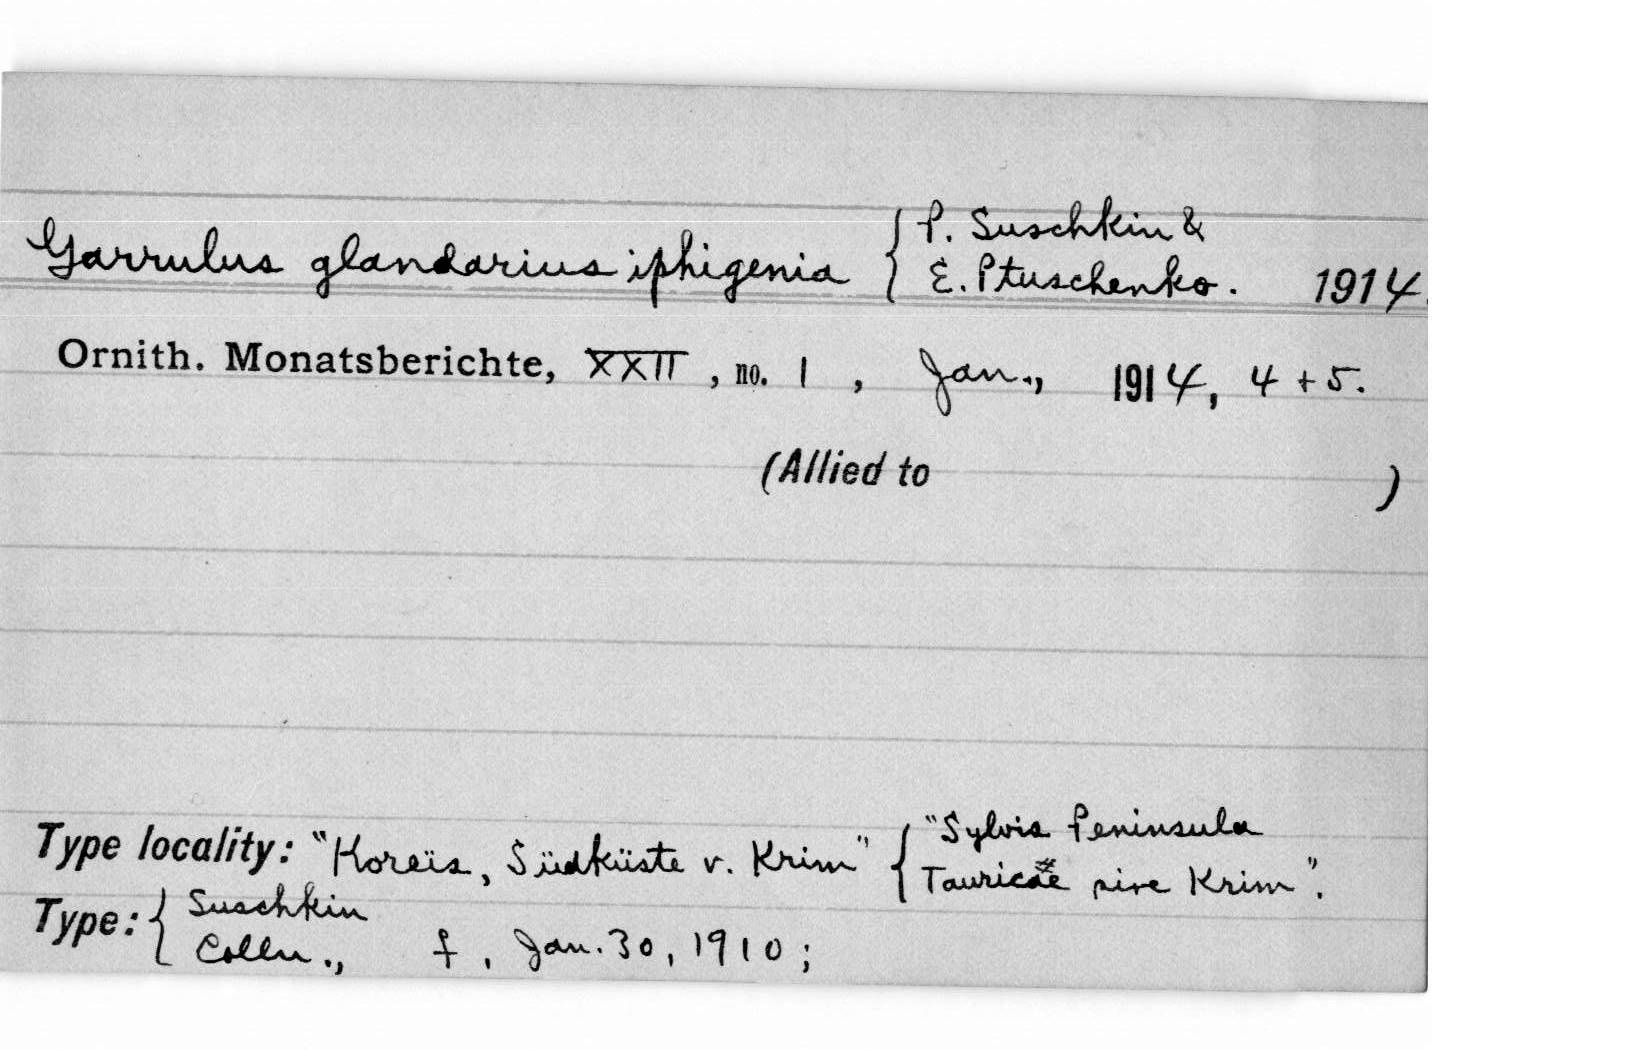 Garrulus glandarius iphigenia { P. Suschkin &
E. Ptuschenko. 1914.
Ornith. Monatsberichte, XXII, no. 1, Jan., 1914, 4 + 5.
(Allied to )
Type locality: "Koreïs, Südküste v. Krim" { "Sylvis Peninsula
Tauricae sive Krim".
Type: { Suschkin
Colln., f, Jan. 30, 1910;